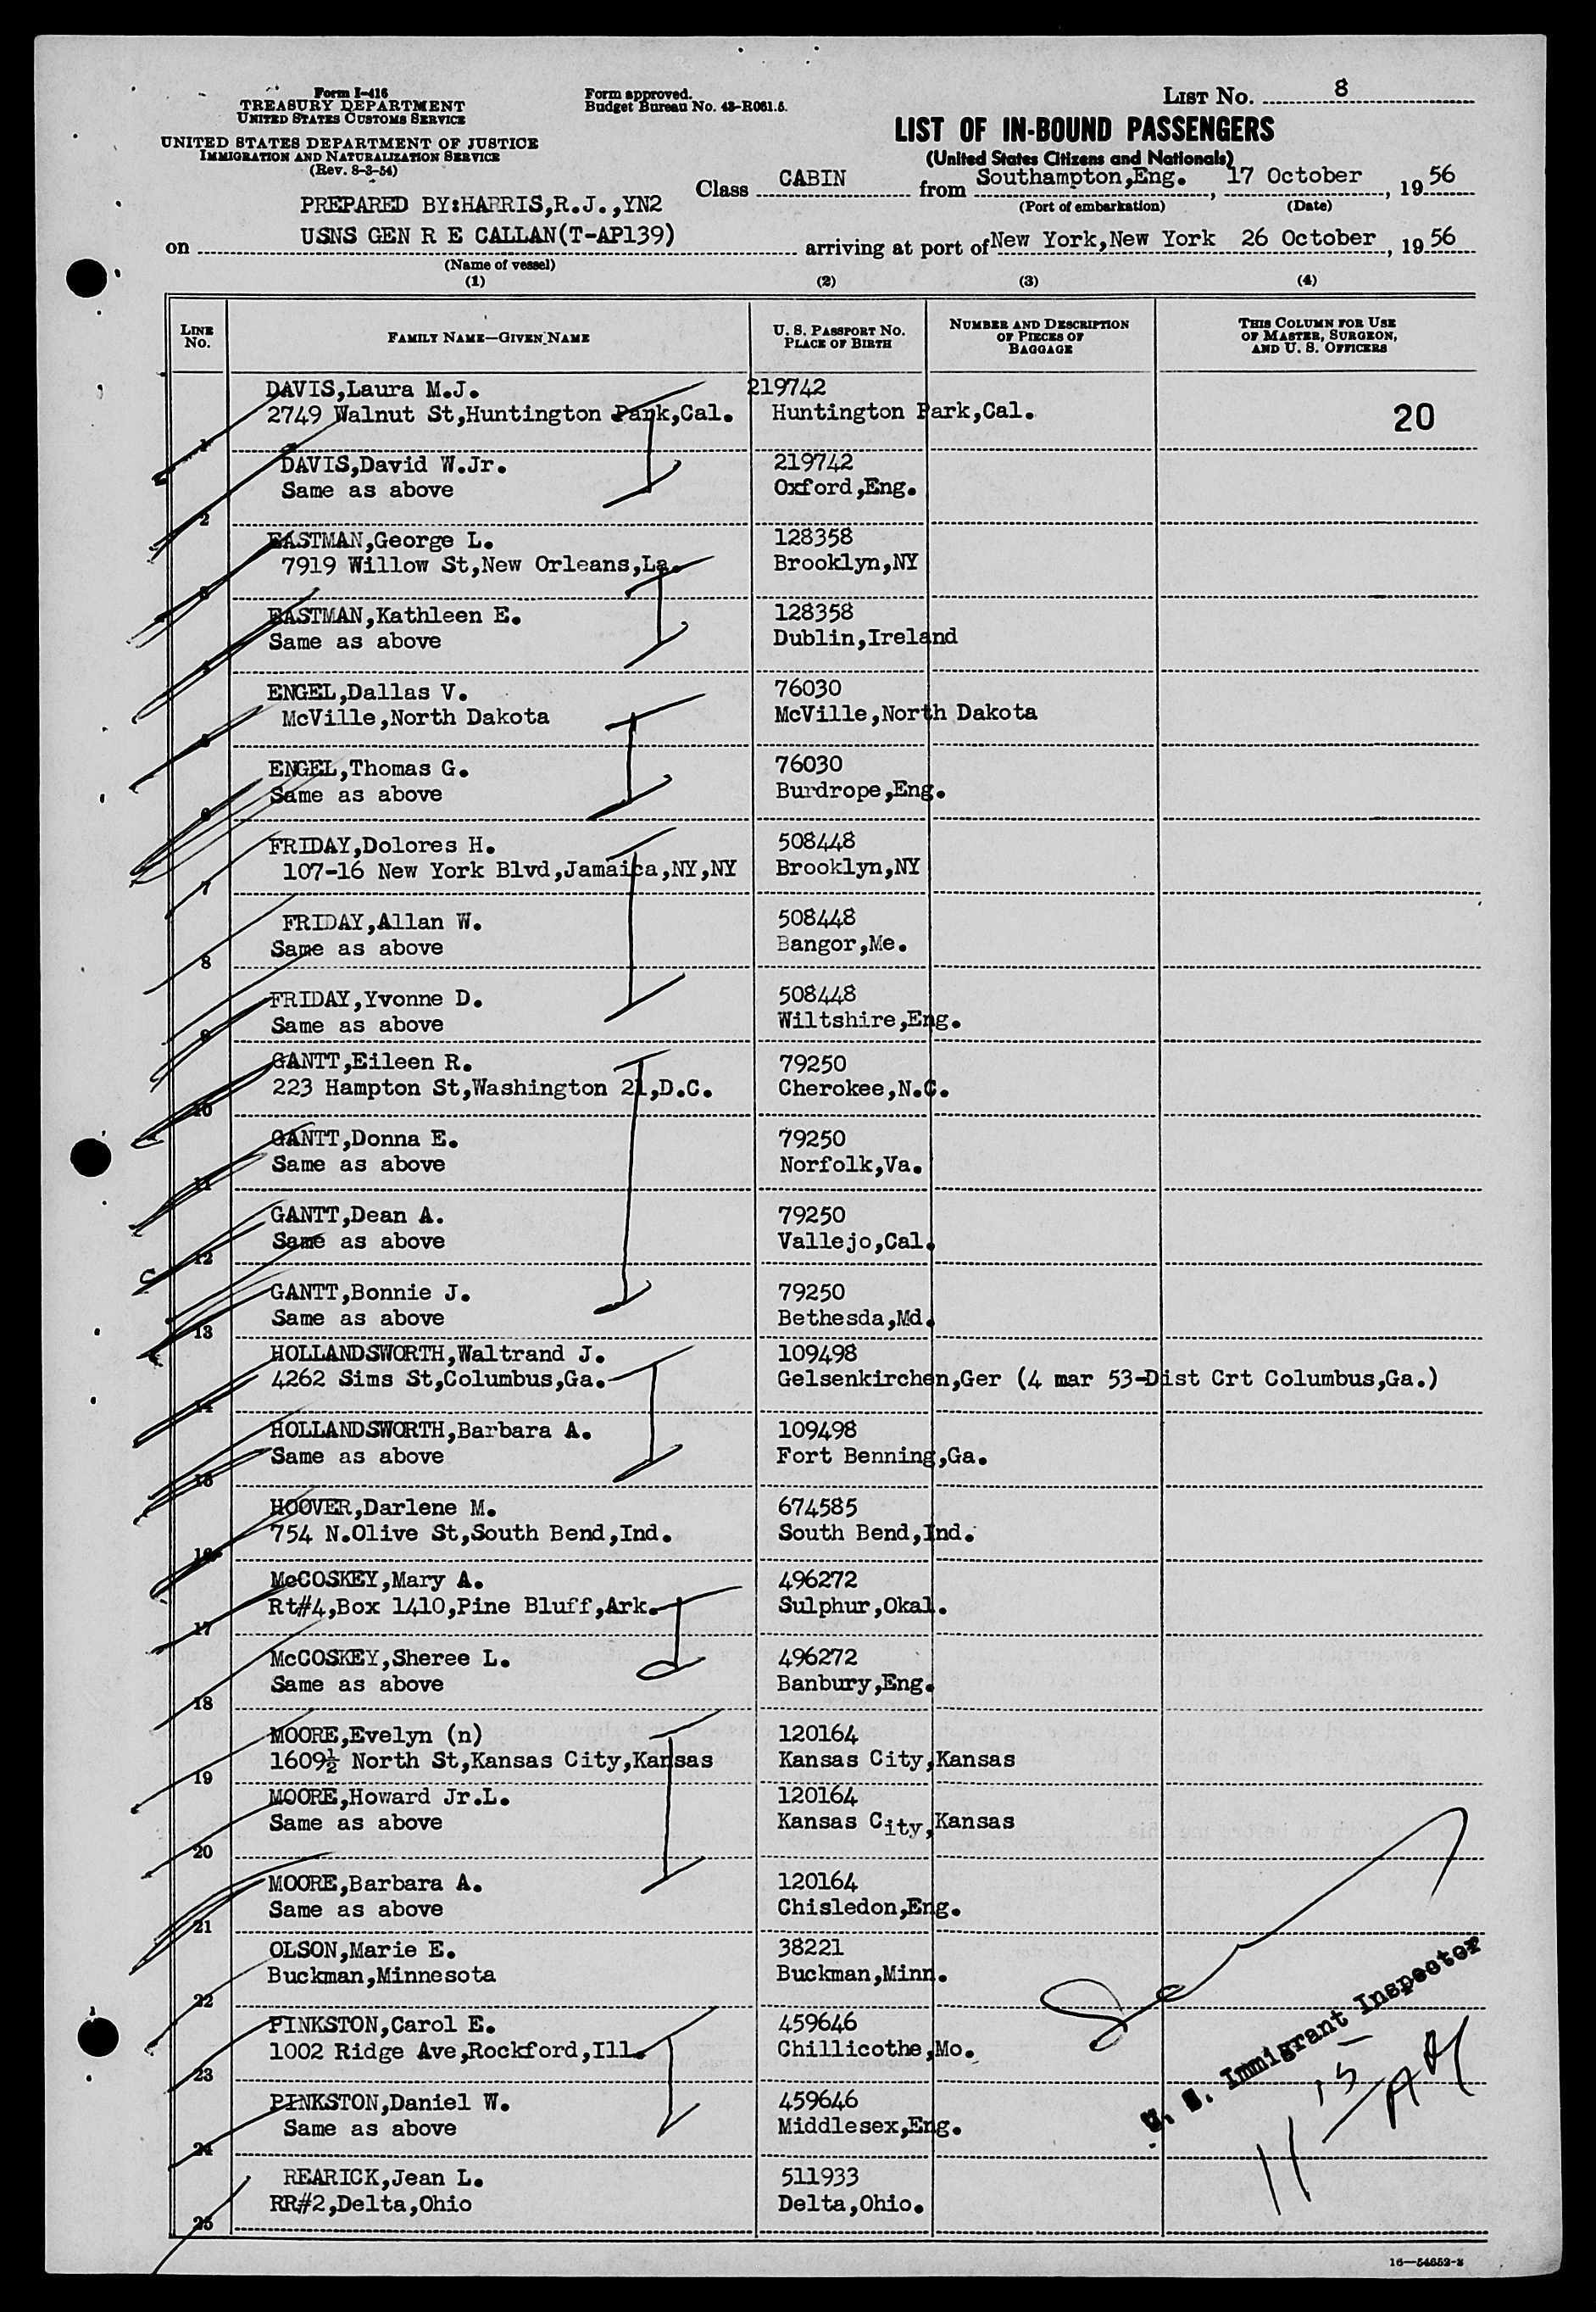 Form I-416
TREASURY DEPARTMENT
UNITED STATES CUSTOMS SERVICE
UNITED STATES DEPARTMENT OF JUSTICE
IMMIGRATION AND NATURALIZATION SERVICE
(Rev. 8-3-54)
Form approved.
Budget Bureau No. 43-R061.5.
LIST NO. 8
LIST OF IN-BOUND PASSENGERS
(United States Citizens and Nationals)
Class CABIN from Southampton,Eng. , 17 October , 19 56
(Port of embarkation) (Date)
PREPARED BY:HARRIS,R.J.,YN2
on USNS GEN R E CALLAN(T-AP139) arriving at port of New York,New York 26 October , 19 56
(Name of vessel)
(1) (2) (3) (4)
LINE NO. FAMILY NAME—GIVEN NAME U. S. PASSPORT NO. PLACE OF BIRTH NUMBER AND DESCRIPTION OF PIECES OF BAGGAGE THIS COLUMN FOR USE OF MASTER, SURGEON, AND U. S. OFFICERS
DAVIS,Laura M.J. 219742
1 2749 Walnut St,Huntington Park,Cal. Huntington Park,Cal. 20
DAVIS,David W.Jr. 219742
2 Same as above Oxford,Eng.
EASTMAN,George L. 128358
3 7919 Willow St,New Orleans,La. Brooklyn,NY
EASTMAN,Kathleen E. 128358
4 Same as above Dublin,Ireland
ENGEL,Dallas V. 76030
5 McVille,North Dakota McVille,North Dakota
ENGEL,Thomas G. 76030
6 Same as above Burdrope,Eng.
FRIDAY,Dolores H. 508448
7 107-16 New York Blvd,Jamaica,NY,NY Brooklyn,NY
FRIDAY,Allan W. 508448
8 Same as above Bangor,Me.
FRIDAY,Yvonne D. 508448
9 Same as above Wiltshire,Eng.
GANTT,Eileen R. 79250
10 223 Hampton St,Washington 21,D.C. Cherokee,N.C.
GANTT,Donna E. 79250
11 Same as above Norfolk,Va.
GANTT,Dean A. 79250
12 Same as above Vallejo,Cal.
GANTT,Bonnie J. 79250
13 Same as above Bethesda,Md.
HOLLANDSWORTH,Waltrand J. 109498
14 4262 Sims St,Columbus,Ga. Gelsenkirchen,Ger (4 mar 53-Dist Crt Columbus,Ga.)
HOLLANDSWORTH,Barbara A. 109498
15 Same as above Fort Benning,Ga.
HOOVER,Darlene M. 674585
16 754 N.Olive St,South Bend,Ind. South Bend,Ind.
McCOSKEY,Mary A. 496272
17 Rt#4,Box 1410,Pine Bluff,Ark. Sulphur,Okal.
McCOSKEY,Sheree L. 496272
18 Same as above Banbury,Eng.
MOORE,Evelyn (n) 120164
19 1609½ North St,Kansas City,Kansas Kansas City,Kansas
MOORE,Howard Jr.L. 120164
20 Same as above Kansas City,Kansas
MOORE,Barbara A. 120164
21 Same as above Chisledon,Eng.
OLSON,Marie E. 38221
22 Buckman,Minnesota Buckman,Minn.
PINKSTON,Carol E. 459646
23 1002 Ridge Ave,Rockford,Ill. Chillicothe,Mo.
PINKSTON,Daniel W. 459646
24 Same as above Middlesex,Eng.
REARICK,Jean L. 511933
25 RR#2,Delta,Ohio Delta,Ohio.
U. S. Immigrant Inspector
11 15 AM
16—54652-2